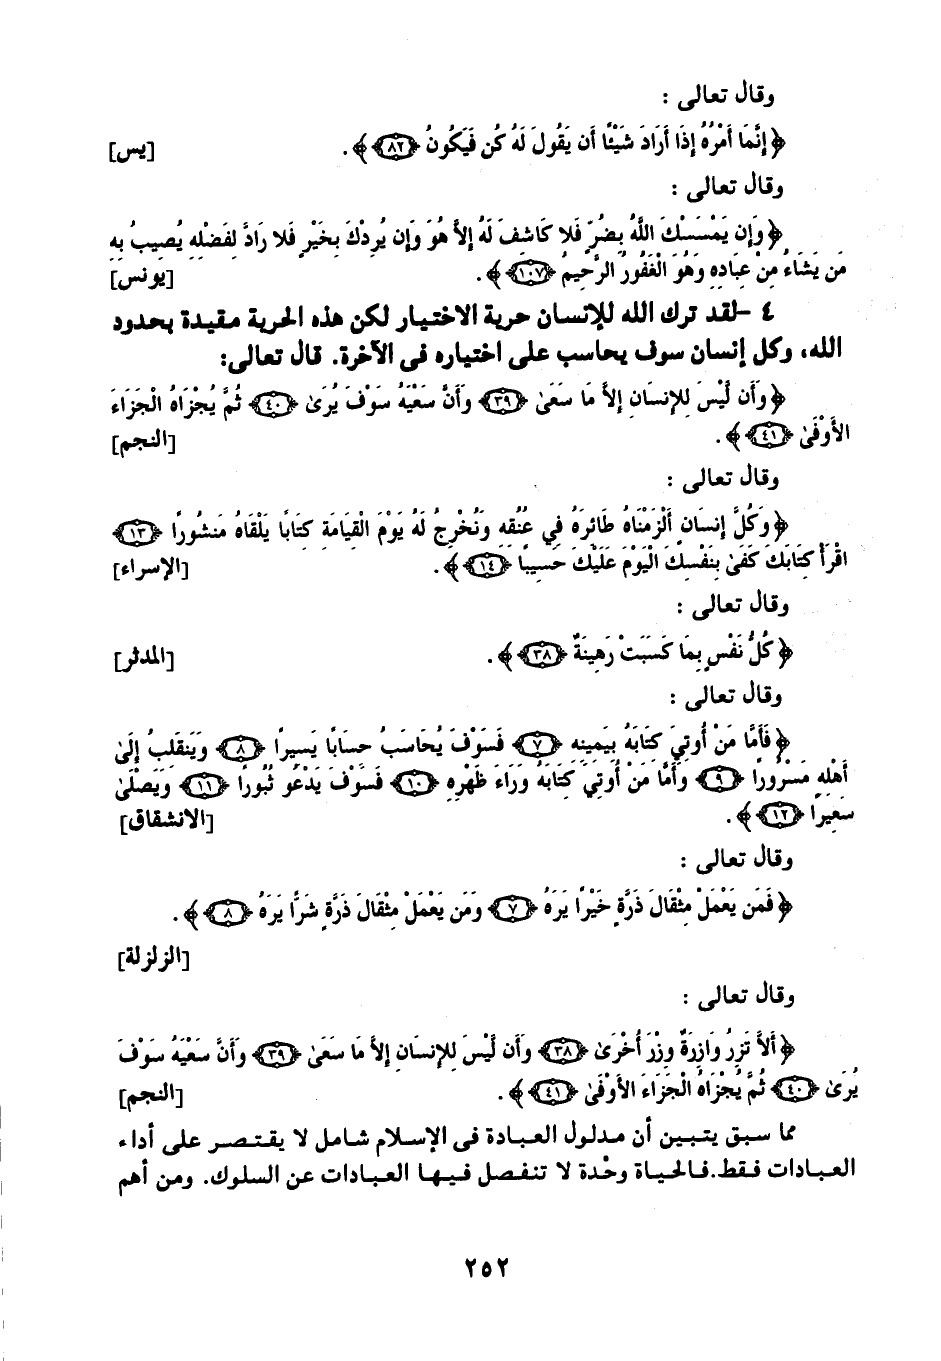 وقال تعالى :
﴿ إِنَّمَا أَمْرُهُ إِذَا أَرَادَ شَيْئًا أَن يَقُولَ لَهُ كُن فَيَكُونُ ﴿٨٢﴾ ﴾ . [يس]
وقال تعالى :
﴿ وَإِن يَمْسَسْكَ اللَّهُ بِضُرٍّ فَلا كَاشِفَ لَهُ إِلاَّ هُوَ وَإِن يُرِدْكَ بِخَيْرٍ فَلا رَادَّ لِفَضْلِهِ يُصِيبُ بِهِ
مَن يَشَاءُ مِنْ عِبَادِهِ وَهُوَ الْغَفُورُ الرَّحِيمُ ﴿١٠٧﴾ ﴾ . [يونس]
٤ -لقد ترك الله للإنسان حرية الاختيار لكن هذه الحرية مقيدة بحدود
الله، وكل إنسان سوف يحاسب على اختياره فى الآخرة. قال تعالى:
﴿ وَأَن لَّيْسَ لِلإِنسَانِ إِلاَّ مَا سَعَىٰ ﴿٣٩﴾ وَأَنَّ سَعْيَهُ سَوْفَ يُرَىٰ ﴿٤٠﴾ ثُمَّ يُجْزَاهُ الْجَزَاءَ
الأَوْفَىٰ ﴿٤١﴾ ﴾ . [النجم]
وقال تعالى :
﴿ وَكُلَّ إِنسَانٍ أَلْزَمْنَاهُ طَائِرَهُ فِي عُنُقِهِ وَنُخْرِجُ لَهُ يَوْمَ الْقِيَامَةِ كِتَابًا يَلْقَاهُ مَنشُورًا ﴿١٣﴾
اقْرَأْ كِتَابَكَ كَفَىٰ بِنَفْسِكَ الْيَوْمَ عَلَيْكَ حَسِيبًا ﴿١٤﴾ ﴾ . [الإسراء]
وقال تعالى :
﴿ كُلُّ نَفْسٍ بِمَا كَسَبَتْ رَهِينَةٌ ﴿٣٨﴾ ﴾ . [المدثر]
وقال تعالى :
﴿ فَأَمَّا مَنْ أُوتِيَ كِتَابَهُ بِيَمِينِهِ ﴿٧﴾ فَسَوْفَ يُحَاسَبُ حِسَابًا يَسِيرًا ﴿٨﴾ وَيَنقَلِبُ إِلَىٰ
أَهْلِهِ مَسْرُورًا ﴿٩﴾ وَأَمَّا مَنْ أُوتِيَ كِتَابَهُ وَرَاءَ ظَهْرِهِ ﴿١٠﴾ فَسَوْفَ يَدْعُو ثُبُورًا ﴿١١﴾ وَيَصْلَىٰ
سَعِيرًا ﴿١٢﴾ ﴾ . [الانشقاق]
وقال تعالى :
﴿ فَمَن يَعْمَلْ مِثْقَالَ ذَرَّةٍ خَيْرًا يَرَهُ ﴿٧﴾ وَمَن يَعْمَلْ مِثْقَالَ ذَرَّةٍ شَرًّا يَرَهُ ﴿٨﴾ ﴾ .
[الزلزلة]
وقال تعالى :
﴿ أَلاَّ تَزِرُ وَازِرَةٌ وِزْرَ أُخْرَىٰ ﴿٣٨﴾ وَأَن لَّيْسَ لِلإِنسَانِ إِلاَّ مَا سَعَىٰ ﴿٣٩﴾ وَأَنَّ سَعْيَهُ سَوْفَ
يُرَىٰ ﴿٤٠﴾ ثُمَّ يُجْزَاهُ الْجَزَاءَ الأَوْفَىٰ ﴿٤١﴾ ﴾ . [النجم]
مما سبق يتبين أن مدلول العبادة فى الإسلام شامل لا يقتصر على أداء
العبادات فقط.فالحياة وحْدة لا تنفصل فيها العبادات عن السلوك. ومن أهم
٢٥٢